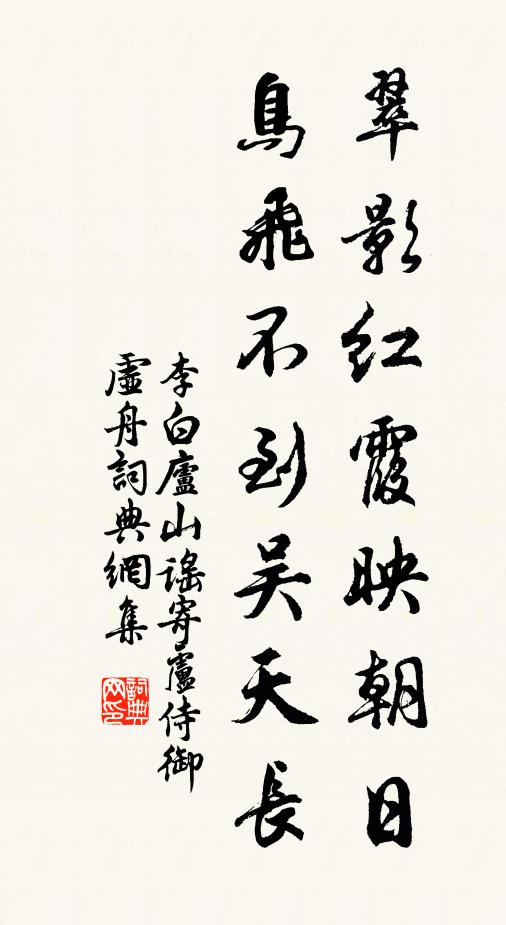 翠影紅霞映朝日
鳥飛不到吳天長
李白廬山謠寄盧侍御
虛舟詞典網集
詞典
网印